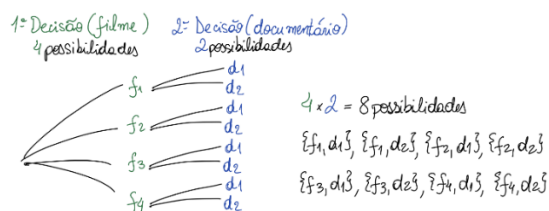 1ª Decisão (filme)
4 possibilidades
2ª Decisão (documentário)
2 possibilidades
f1
d1
d2
f2
d1
d2
f3
d1
d2
f4
d1
d2
4 x 2 = 8 possibilidades
{f1, d1}, {f1, d2}, {f2, d1}, {f2, d2}
{f3, d1}, {f3, d2}, {f4, d1}, {f4, d2}